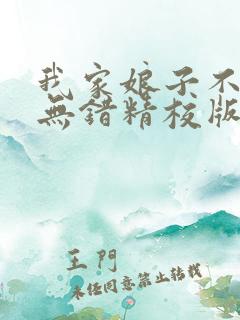 我家娘子不
無錯精校版
王門
未經同意禁止轉載